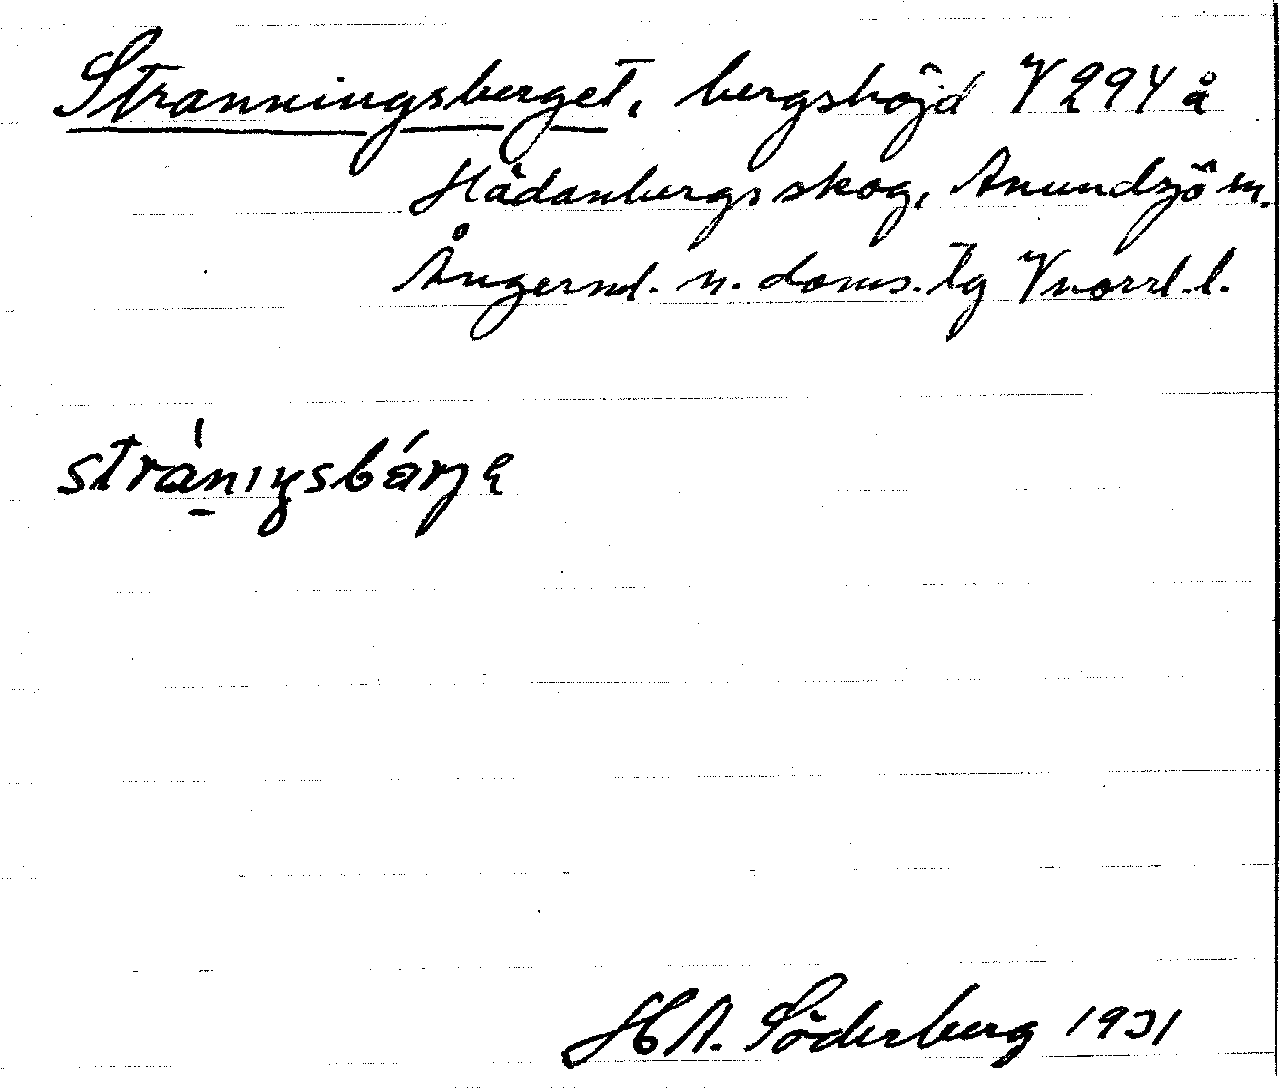 Stranningsberget, bergshöjd V 294 å
Hädanbergsskog, Anundsjö sn.
Ångerml. n. doms. tg Vnorrl. l.
stránıŋsbárjə
H A. Söderberg 1931